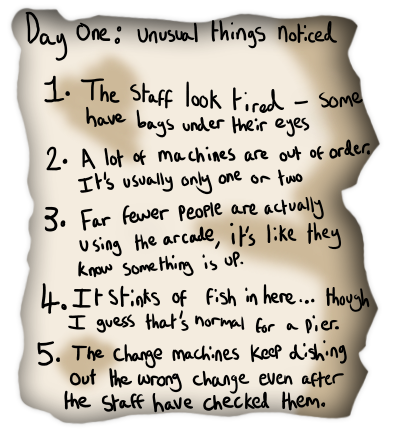 Day One: unusual things noticed
1. The staff look tired – some
have bags under their eyes
2. A lot of machines are out of order.
It's usually only one or two
3. Far fewer people are actually
using the arcade, it's like they
know something is up.
4. It stinks of fish in here... though
I guess that's normal for a pier.
5. The change machines keep dishing
out the wrong change even after
the staff have checked them.